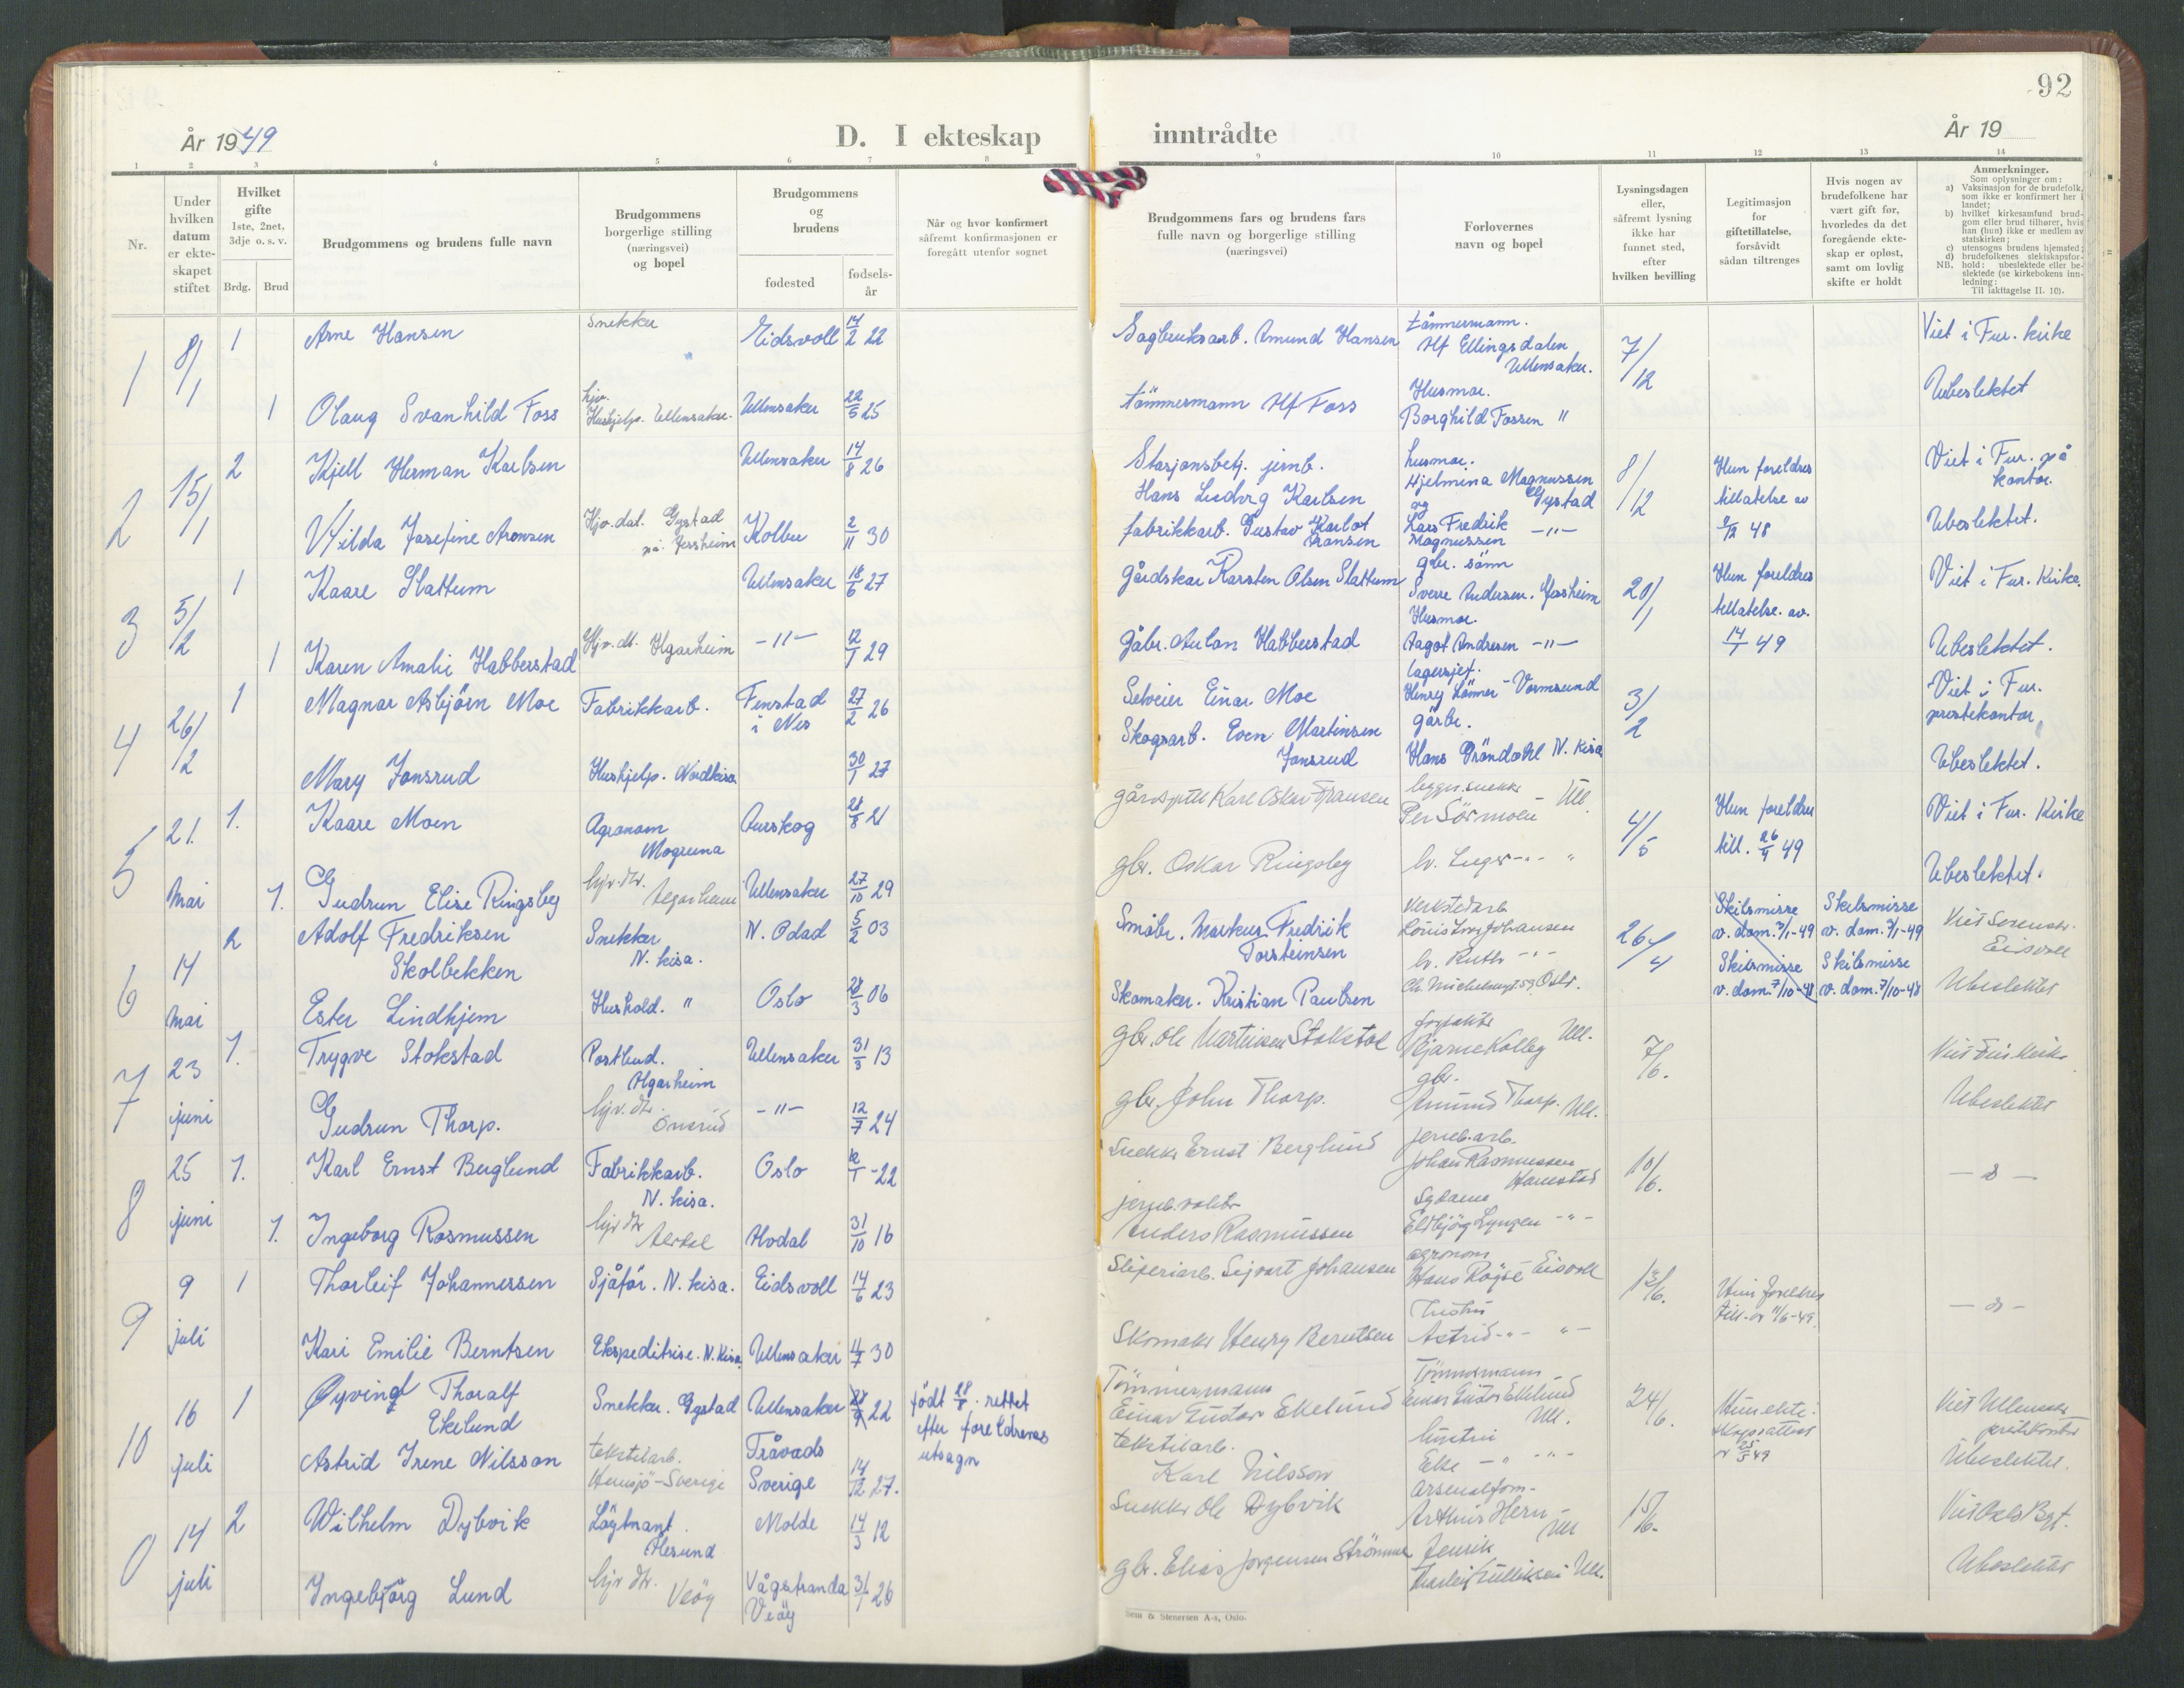 92
År 1949
D. I ekteskap
inntrådte
År 19
1 2 3 4 5 6 7 8 9 10 11 12 13 14
Nr.
Under hvilken datum er ekteskapet stiftet
Hvilket gifte 1ste, 2net, 3dje o. s. v.
Brdg. Brud
Brudgommens og brudens fulle navn
Brudgommens borgerlige stilling (næringsvei) og bopel
Brudgommens og brudens
fødested
fødselsår
Når og hvor konfirmert såfremt konfirmasjonen er foregått utenfor sognet
Brudgommens fars og brudens fars fulle navn og borgerlige stilling (næringsvei)
Forlovernes navn og bopel
Lysningsdagen eller, såfremt lysning ikke har funnet sted, efter hvilken bevilling
Legitimasjon for giftetillatelse, forsåvidt sådan tiltrenges
Hvis nogen av brudefolkene har vært gift før, hvorledes da det foregående ekteskap er opløst, samt om lovlig skifte er holdt
Anmerkninger.
Som oplysninger om:
a) Vaksinasjon for de brudefolk, som ikke er konfirmert her i landet;
b) hvilket kirkesamfund brudgom eller brud tilhører, hvis han (hun) ikke er medlem av statskirken;
c) utensogns brudens hjemsted;
d) brudefolkenes slektskapsforhold: ubeslektede eller beslektede (se kirkebokens innledning:
NB.
Til iakttagelse II. 10).
1 8/1 1 Arne Hansen Snekker Eidsvoll 14/2 22 Sagbruksarb. Amund Hansen tømmermann. Alf Ellingsdalen Ullensaker. 7/12 Viet i Fur. kirke
1 Olaug Svanhild Foss hjv. Hushjelp. Ullensaker. Ullensaker 22/5 25 tømmermann Alf Foss Husmor. Borghild Fossen " Ubeslektet
2 15/1 2 Kjell Herman Karlsen Ullensaker 14/8 26 Stasjonsbetj. jernb. Hans Ludvig Karlsen husmor. Hjelmina Magnussen Gystad 8/12 Hun foreldres tillatelse av 9/12 48 Viet i Fur. på kontor.
Vilda Josefine Aronsen Hjv. dat. Gystad på Jessheim Kolbu 2/11 30 fabrikkarb. Gustav Karlot og Lars Fredrik Magnussen -"- Ubeslektet.
3 5/2 1 Kaare Slattum Ullensaker 18/6 27 Gårdskar Karsten Olsen Slattum gbr. sønn Sverre Andersen. Jessheim 20/1 Hun foreldres tillatelse. av. 14/1 49 Viet i Fur. Kirke.
1 Karen Amalie Habberstad Hjv. dt. Algarheim -"- 12/1 29 Gåbr. Aulan Habberstad Husmor. Aagot Andresen -"- Ubeslektet.
4 26/2 1 Magnar Asbjörn Moe Fabrikkarb. Fenstad i Nes 27/2 26 Selveier Einar Moe lagersjef. Henry Lönner - Vormsund 3/2 Viet i Fur. prestekontor,
Mary Jonsrud Hushjelp. Nordkisa 30/1 27 Skogsarb. Even Martinsen Jonsrud gårbr. Hans Gröndahl N. Kisa Ubeslektet.
5 21. Mai 1. Kaare Moen Agronom Mogreina Aurskog 28/8 21 Karl Oskar Fransen Per Sörmoen Ull. 4/5 Hun foreldres till. 26/4 49 Viet i Fur. Kirke
1. Gudrun Elise Ringsby hjv. dtr. Algarheim Ullensaker 27/10 29 gbr. Oskar Ringsby Ubeslektet.
6 14 Mai 2 Adolf Fredriksen Skolbekken Snekker N. kisa. N. Odal 5/2 03 Småbr. Markus Fredrik Torsteinsen Verkstedarb Johansen 26/4 Skilsmisse v. dom. 7/1-49 Skilsmisse v. dom. 7/1-49 Eidsvoll
Ester Lindhjem Hushold. " Oslo 28/3 06 Skomaker. Kristian Paulsen Skilsmisse v. dom. 7/10-48 Skilsmisse v. dom. 7/10-48 Ubeslektet
7 23 juni 1. Trygve Stokstad Postbud. Algarheim Ullensaker 31/3 13 gbr. Ole Martinsen Stokstad Bjarne Kolby Ull. 7/6.
Gudrun Thorp. hjv. dtr. Önsrud -"- 12/7 24 gbr. John Thorp. gbr. Amund Thorp. Ull. Ubeslektet
8 25 juni 1. Karl Ernst Berglund Fabrikkarb. N. kisa. Oslo -22 Snekker Ernst Berglund jernb.arb. Johan Rasmussen 10/6.
1. Ingeborg Rasmussen hjv dtr Hodal 31/10 16 jernb.vokter Anders Rasmussen -"-
9 9 juli 1 Thorleif Johannessen Sjåför. N. kisa. Eidsvoll 14/6 23 Sliperiarb. Sigvart Johansen agronom Hans Röjse Eidsvoll Hun foreldres till. av 11/6-49.
Kari Emilie Berntsen Ekspeditrise. N. Kisa. Ullensaker 4/7 30 Skomaker Henry Berntsen Astrid -"-
10 16 juli 1 Øyvind Thoralf Ekelund Snekker. Gystad Ullensaker 22 født 28/8. rettet efter foreldrenes utsagn Tömmermann Einar Gustav Ekelund Tömmermann Einar Gustav Ekelund Ull. 24/6. Viet Ullensaker
Astrid Irene Nilsson tekstilarb. Hemsjö-Sverige Tråvads Sverige 14/12 27. tekstilarb. Karl Nilsson hustru Else Ubeslektet.
0 14 juli 2 Wilhelm Dybvik Löytnant. Ålesund Molde 14/3 12 Snekker Ole Dybvik Arthur Hern Ull 15/6. Viet Oslo Byf.
Ingebjörg Lund hjv dtr. Veöy Vågstranda Veöy 31/1 26 gbr. Elias Jørgensen Strömme Ull. Ubeslektet
Sem & Stenersen A-s, Oslo.